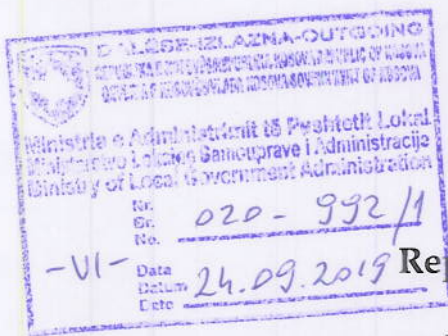 DALËSE-IZLAZNA-OUTGOING
Ministria e Administrimit të Pushtetit Lokal
Ministarstvo Lokalne Samouprave i Administracije
Ministry of Local Government Administration
Nr.
Br. 020 - 992/1
No.
-VI-
Data
Datum 24.09.2019
Date
Rep